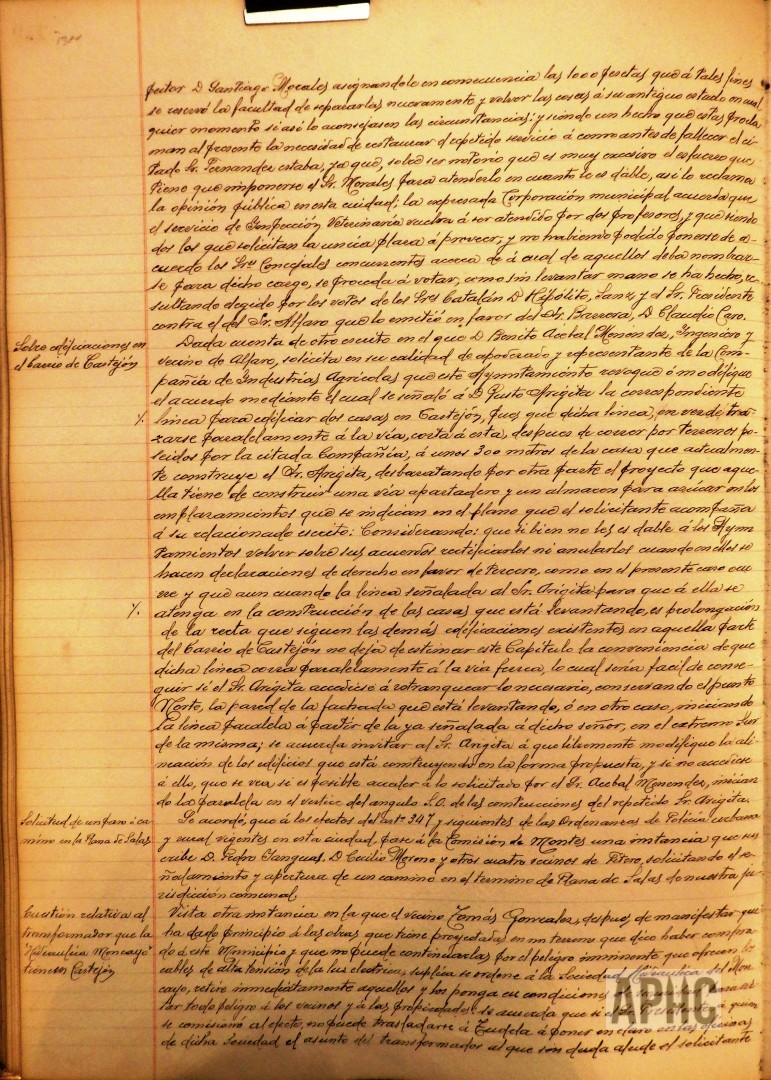 peitor D Santiago Morales asignandole en consecuencia las 1000 pesetas que á tales fines
se reservó la facultad de separarlas nuevamente y volver las cosas á su antiguo estado en cual
quier momento si asi lo aconsejasen las circunstancias; y siendo un hecho que estas procla
man al presente la necesidad de restaurar el repetido servicio á como antes de fallecer el ci-
tado Sr. Fernandez estaba, ya que, sobre ser notorio que es muy excesivo el esfuerzo que
tiene que imponerse el Sr. Morales para atenderlo en cuanto le es dable, asi lo reclama
la opinión pública en esta ciudad; la expresada Corporación municipal acuerda que
el servicio de Inspección Veterinaria vuelva á ser atendido por dos profesores, y que siendo
dos los que solicitan la unica plaza á proveer, y no habiendo podido ponerse de a-
cuerdo los Sres Concejales concurrentes acerca de á cual de aquellos deba nombrar-
se para dicho cargo, se proceda á votar, como sin levantar mano se ha hecho, re-
sultando elegido por los votos de los Sres Catalán D Hipólito, Sanz y el Sr. Presidente
contra el del Sr. Alfaro que lo emitió en favor del Sr. D. Claudio Caro.
Sobre edificaciones en
el barrio de Castejón
Dada cuenta de otro escrito en el que D Benito Acebal Menendez, Ingeniero y
vecino de Alfaro, solicita en su calidad de apoderado y representante de la Com-
pañia de Industrias Agricolas que este Ayuntamiento revoque ó modifique
el acuerdo mediante el cual se señaló á D Justo Arigita la correspondiente
%. linea para edificar dos casas en Castejón, pues que dicha linea, en vez de tra-
zarse paralelamente á la via, corta á esta, despues de correr por terrenos po-
seidos por la citada Compañia, á unos 300 metros de la casa que actualmen-
te construye el Sr. Arigita, desbaratando por otra parte el proyecto que aque-
lla tiene de construir una via apartadero y un almacen para azúcar en los
emplazamientos que se indican en el plano que el solicitante acompaña
á su relacionado escrito: Considerando: que si bien no les es dable á los Ayun
tamientos volver sobre sus acuerdos rectificarlos ni anularlos cuando en ellos se
hacen declaraciones de derecho en favor de tercero, como en el presente caso ocu
rre y que aun cuando la linea señalada al Sr. Arigita para que á ella se
%. atenga en la construcción de las casas que está levantando, es prolongación
de la recta que siguen las demás edificaciones existentes en aquella parte
del barrio de Castejón no deja de estimar este Capitulo la conveniencia de que
dicha linea corra paralelamente á la via ferrea, lo cual seria facil de conse-
guir si el Sr. Arigita accediese á retranquear lo necesario, conservando el punto
Norte, la pared de la fachada que está levantando, ó en otro caso, iniciando
la linea paralela á partir de la ya señalada á dicho señor, en el extremo Sur
de la misma; se acuerda invitar al Sr. Arigita á que libremente modifique la ali-
neación de los edificios que está construyendo en la forma propuesta, y si no accediese
á ello, que se vea si es posible acceder á lo solicitado por el Sr. Acebal Menendez, inician
do la paralela en el vertice del angulo S.O. de las contrucciones del repetido Sr. Arigita.
Solicitud de un paso ó ca
mino en la Plana de Salas
Se acordó, que á los efectos del artº 347 y siguientes de las Ordenanzas de Policia urbana
y rural vigentes en esta ciudad, pase á la Comisión de Montes una instancia que sus
cribe D. Pedro Yanguas, D. Cecilio Moreno y otros cuatro vecinos de Fitero, solicitando el se-
ñalamiento y apertura de un camino en el termino de Plana de Salas de nuestra ju-
risdicción comunal.
Cuestión relativa al
transformador que la
"Hidraulica Moncayo"
tiene en Castejón
Vista otra instancia en la que el vecino Tomás Gonzalez, despues de manifestar que
ha dado principio á las obras que tiene proyectadas en un terreno que dice haber compra-
do á este Municipio y que no puede continuarlas por el peligro imminente que ofrecen los
cables de alta tensión de la luz electrica, suplica se ordene á la Sociedad Hidraulica del Mon
cayo, retire inmediatamente aquellos y los ponga en condiciones
tar todo peligro á los vecinos y á las propiedades se acuerda que si el á quien
se comisiona al efecto, no puede trasladarse á Tudela á poner en claro en las oficinas
de dicha Sociedad el asunto del transformador al que sin duda alude el solicitante
APHC